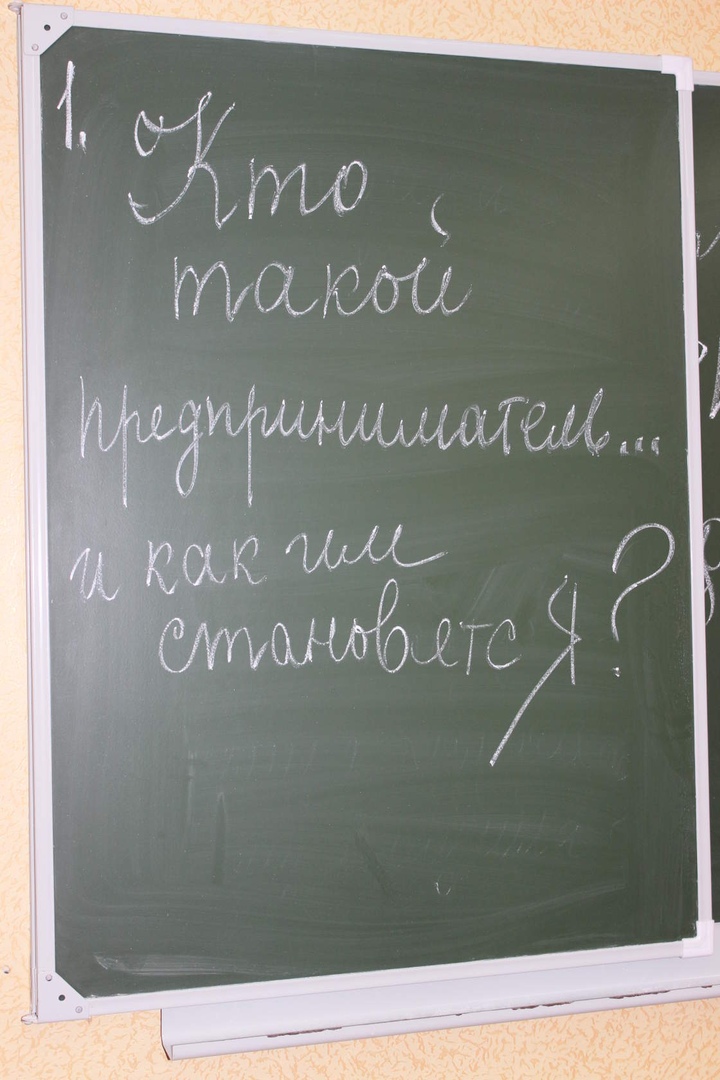 1. Кто
такой
предприниматель...
и как им
становятсЯ?